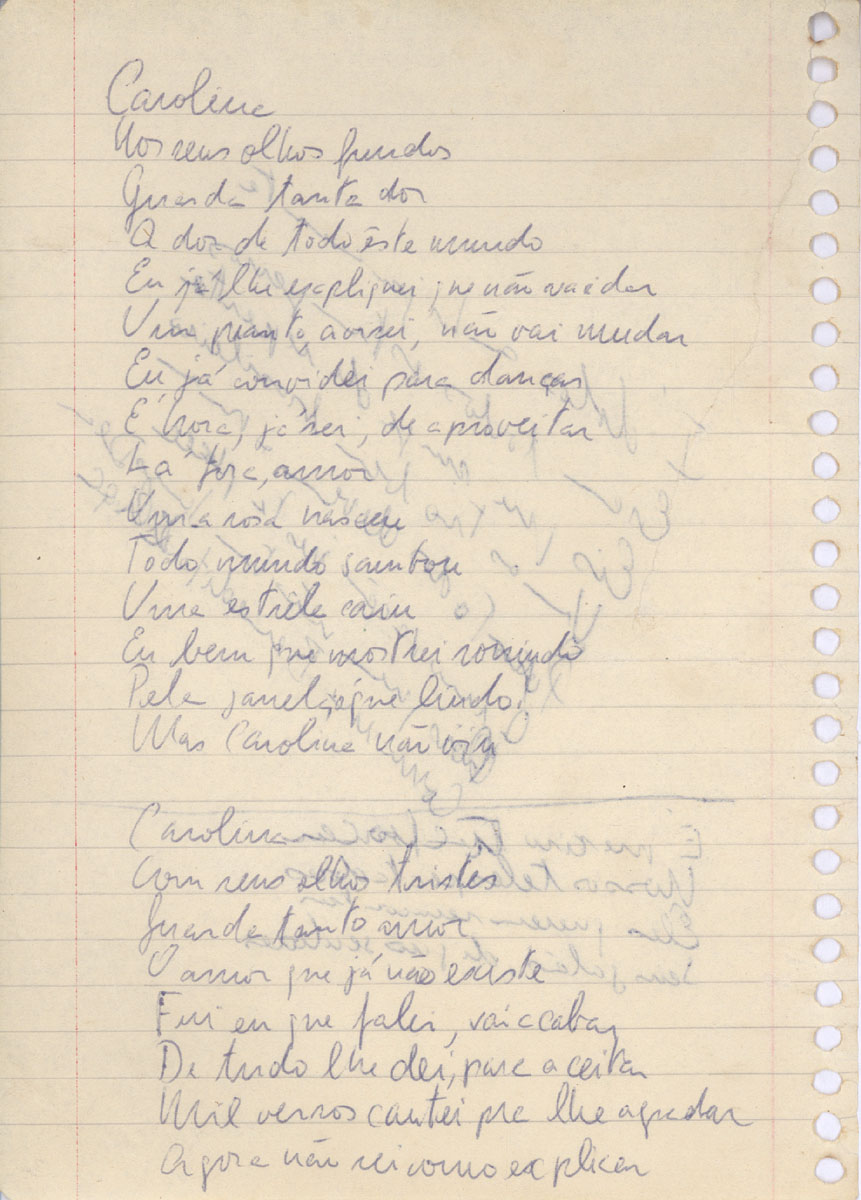 Carolina
Nos seus olhos fundos
Guarda tanta dor
A dor de todo êste mundo
Eu já lhe expliquei que não vai dar
Um pranto, aviei, não vai mudar
Eu já convidei para dançar
É hora, já sei, de aproveitar
Lá fora, amor
Uma rosa nasceu
Todo mundo sambou
Uma estrêla caiu
Eu bem que mostrei sorrindo
Pela janela, que lindo!
Mas Carolina não viu
Carolina
Com seus olhos tristes
Guarda tanto amor
O amor que já não existe
Fui eu que falei, vai acabar
De tudo lhe dei, para aceitar
Mil versos cantei pra lhe agradar
Agora não sei como explicar